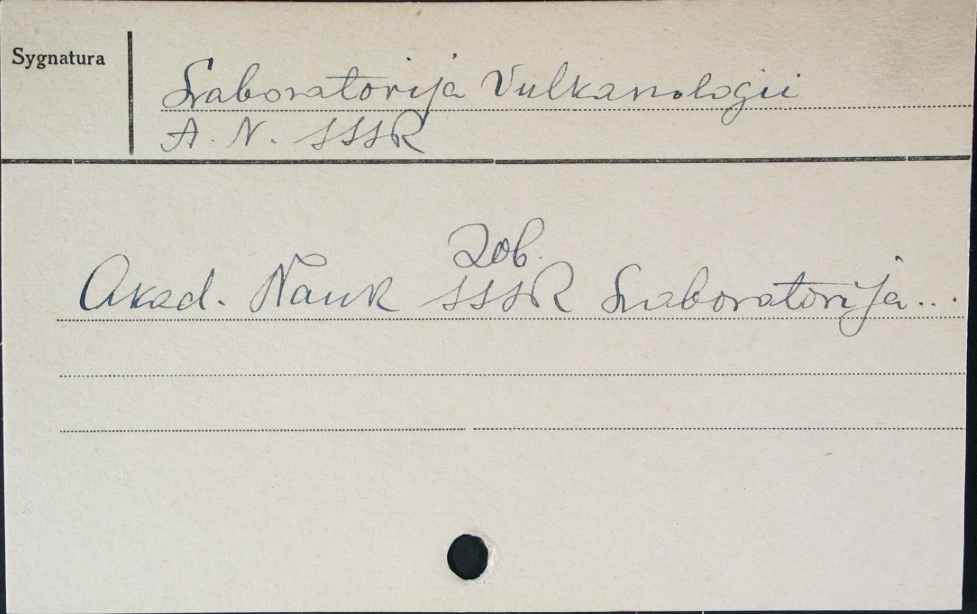 Sygnatura
Laboratorija Vulkanologii
A. N. SSSR
Zob.
Akad. Nauk SSSR Laboratorija...